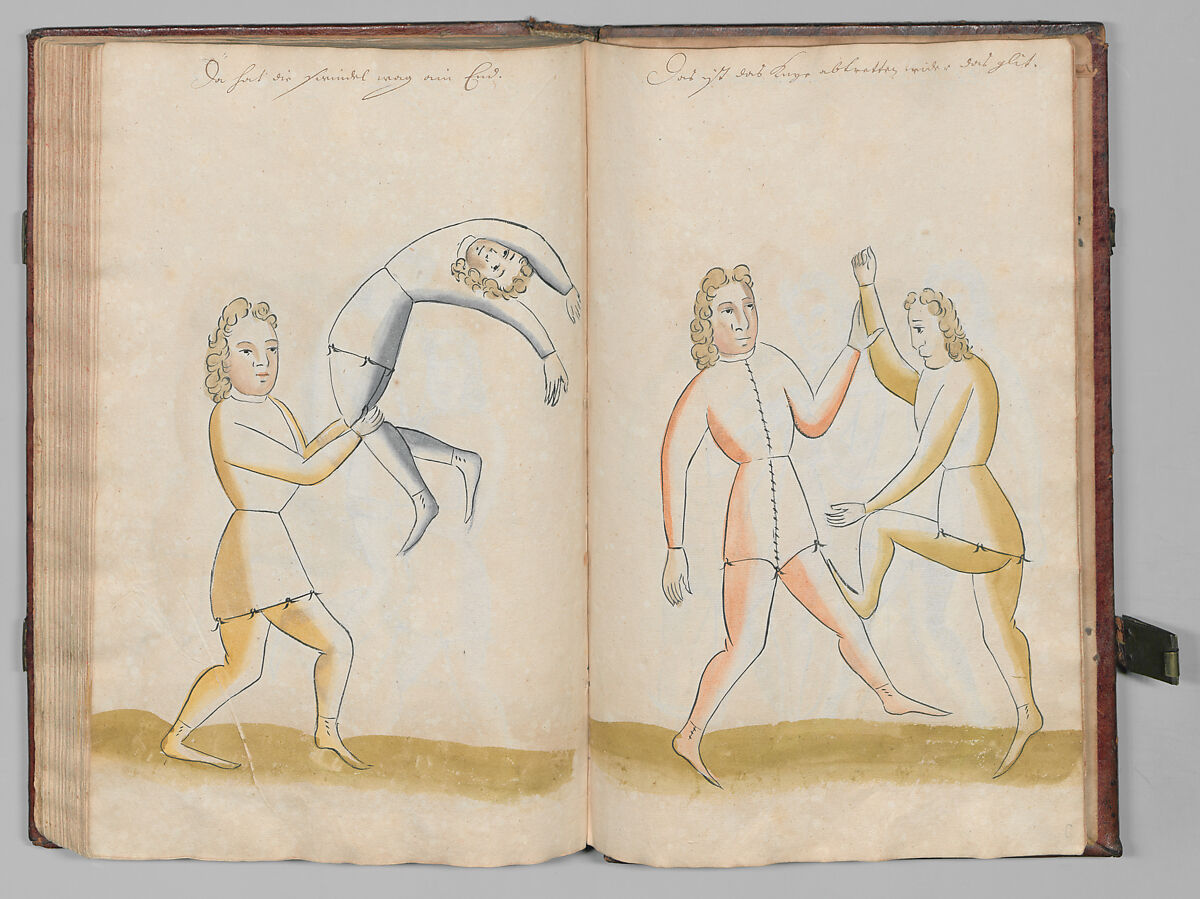 Da hat die schwindel wag ain End.
Das ist das Knye abtretten wider das glit.